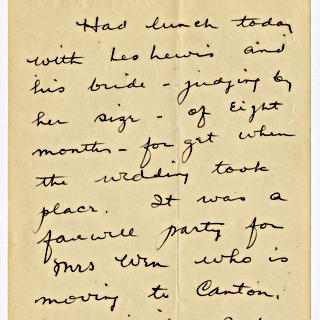 Had lunch today
with Les Lewis and
his bride - judging by
her size - of eight
months - forget when
the wedding took
place. It was a
farewell party for
Mrs Wen who is
moving to Canton.